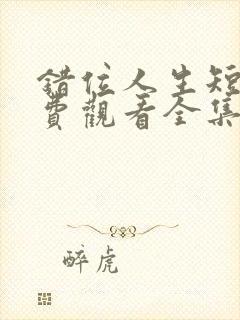 錯位人生短
費觀看全集
醉虎